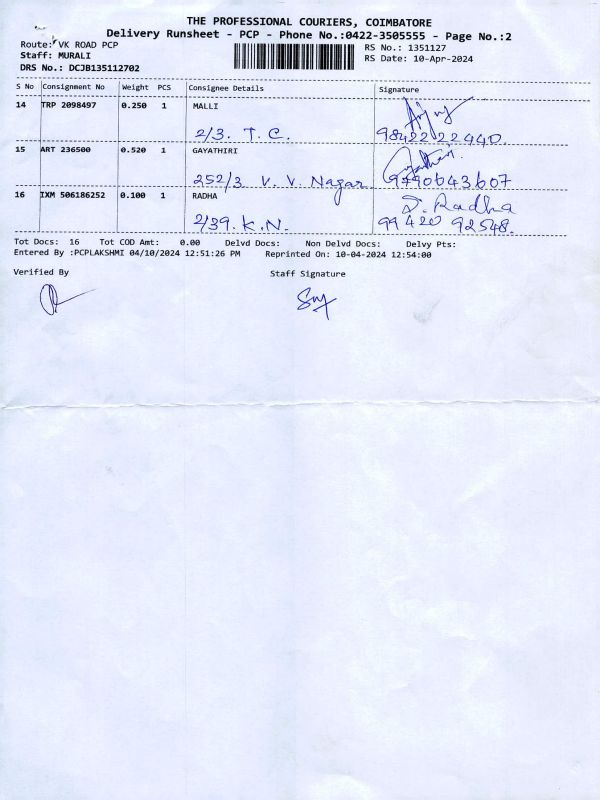 THE PROFESSIONAL COURIERS, COIMBATORE
Delivery Runsheet - PCP - Phone No.:0422-3505555 - Page No.:2
Route: VK ROAD PCP RS No.: 1351127
Staff: MURALI RS Date: 10-Apr-2024
DRS No.: DCJB135112702
S No Consignment No Weight PCS Consignee Details Signature
14 TRP 2098497 0.250 1 MALLI
2/3. T. C. 98422 22440.
15 ART 236500 0.520 1 GAYATHIRI Gayathiri.
252/3 V. V. Nagar 9790643607
16 IXM 506186252 0.100 1 RADHA Radha
2/39. K.N. 99420 92548.
Tot Docs: 16 Tot COD Amt: 0.00 Delvd Docs: Non Delvd Docs: Delvy Pts:
Entered By :PCPLAKSHMI 04/10/2024 12:51:26 PM Reprinted On: 10-04-2024 12:54:00
Verified By Staff Signature